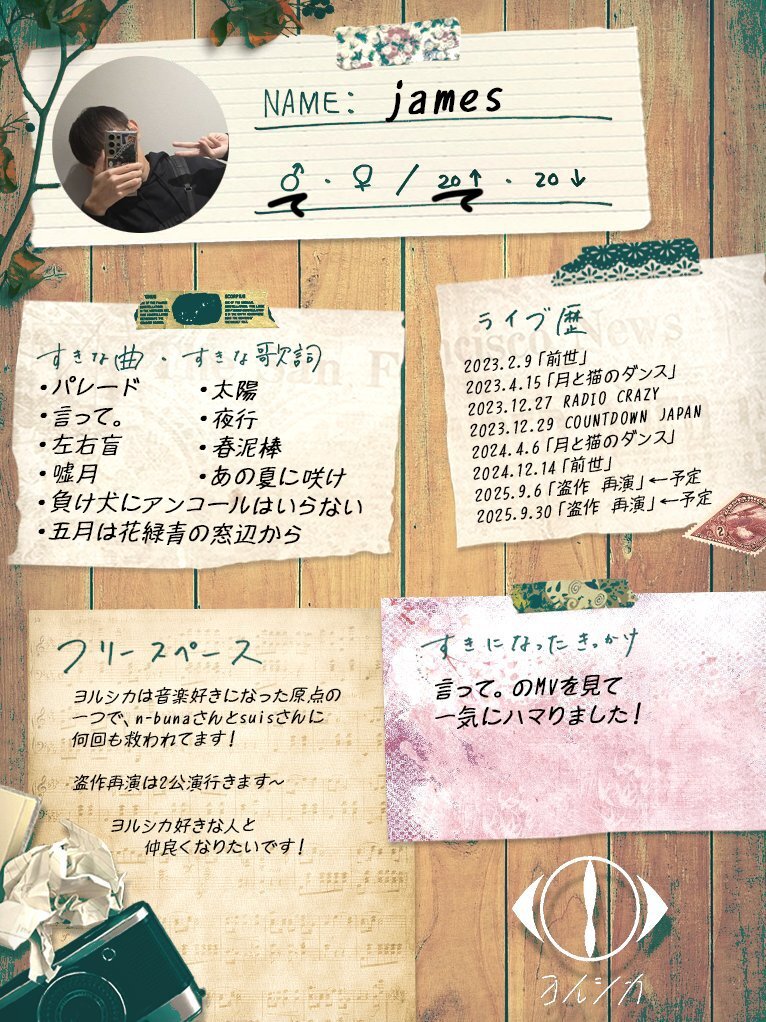 NAME: james
♂・♀ / 20↑・20↓
すきな曲・すきな歌詞
・パレード
・言って。
・左右盲
・嘘月
・太陽
・夜行
・春泥棒
・あの夏に咲け
・負け犬にアンコールはいらない
・五月は花緑青の窓辺から
ライブ歴
2023.2.9「前世」
2023.4.15「月と猫のダンス」
2023.12.27 RADIO CRAZY
2023.12.29 COUNTDOWN JAPAN
2024.4.6「月と猫のダンス」
2024.12.14「前世」
2025.9.6「盗作 再演」←予定
2025.9.30「盗作 再演」←予定
フリースペース
ヨルシカは音楽好きになった原点の
一つで、n-bunaさんとsuisさんに
何回も救われてます！
盗作再演は2公演行きます～
ヨルシカ好きな人と
仲良くなりたいです！
すきになったきっかけ
言って。のMVを見て
一気にハマりました！
ヨルシカ